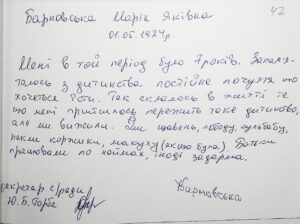 42
Барновська Марія Яківна
01.05.1924р.
Мені в той період було 7 років. Запам'я-
талось з дитинства постійне почуття що
хочеться їсти. Так склалось в житті те
що мені прийшлось пережить таке дитинство,
але ми вижили. Їли щавель, лободу, кульбабу,
пекли коржики, макуху (якщо була). Батьки
працювали по наймах, іноді задарма.
секретар с/ради
Ю.Б. Горба
Барновська